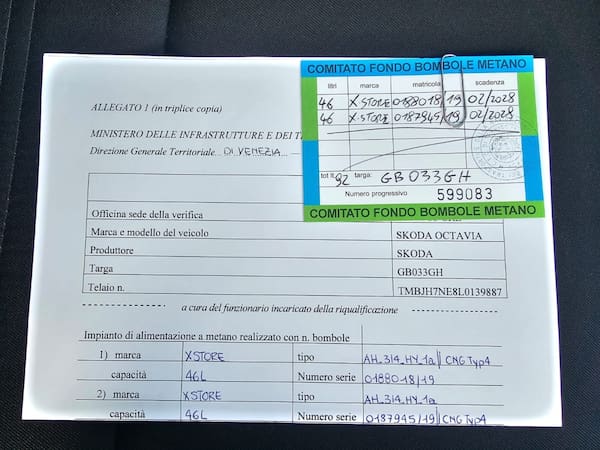 COMITATO FONDO BOMBOLE METANO
litri marca matricola scadenza
46 XSTORE 0188018/19 02/2028
46 XSTORE 0187945/19 02/2028
tot lt. 92 targa: GB033GH
Numero progressivo 599083
COMITATO FONDO BOMBOLE METANO
ALLEGATO 1 (in triplice copia)
MINISTERO DELLE INFRASTRUTTURE E DEI T
Direzione Generale Territoriale... DI VENEZIA...
Officina sede della verifica
Marca e modello del veicolo SKODA OCTAVIA
Produttore SKODA
Targa GB033GH
Telaio n. TMBJH7NE8L0139887
a cura del funzionario incaricato della riqualificazione
Impianto di alimentazione a metano realizzato con n. bombole
1) marca XSTORE tipo AH_314_HY_1a // CNG Typ4
capacità 46L Numero serie 0188018/19
2) marca XSTORE tipo AH_314_HY_1a
capacità 46L Numero serie 0187945/19 // CNG Typ4